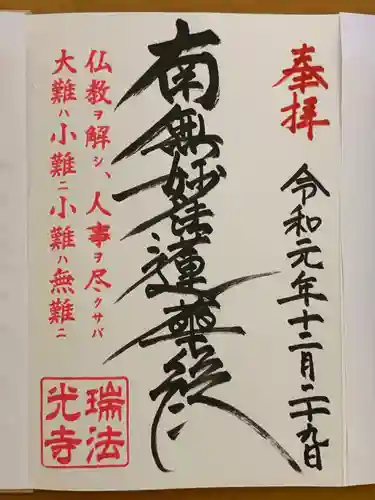 奉拝
令和元年十二月二十九日
南無妙法蓮華経
仏教ヲ解シ、人事ヲ尽クサバ
大難ハ小難ニ小難ハ無難ニ
瑞法
光寺